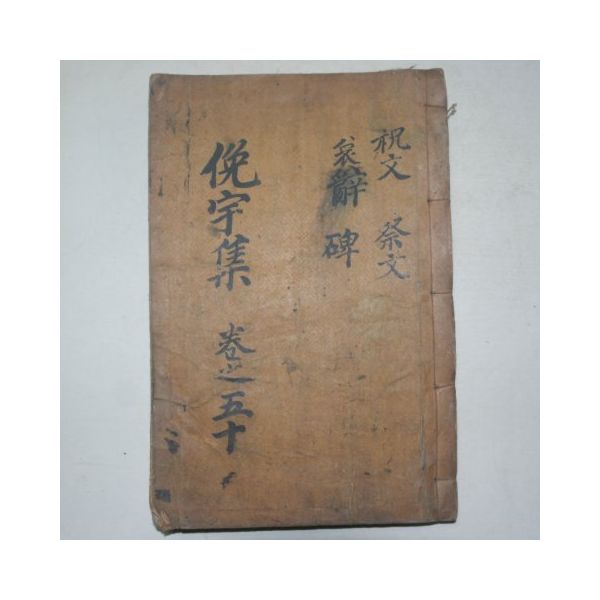 祝文 祭文
哀辭 碑
俛宇集 卷之五十